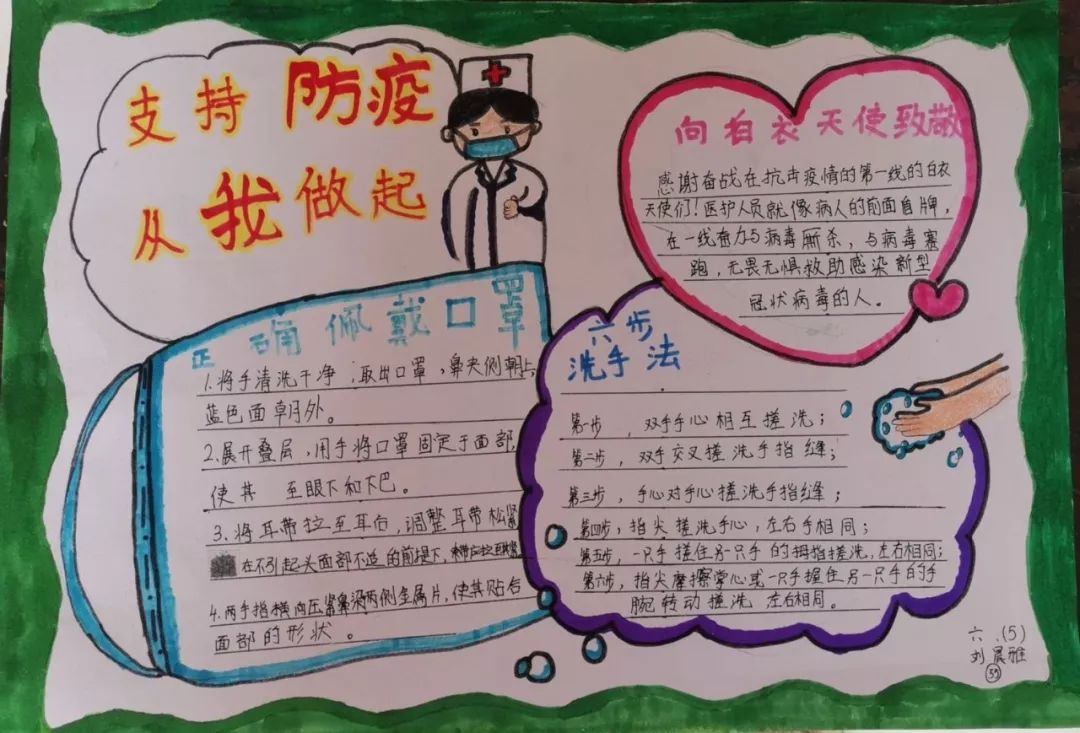 支持防疫
从我做起
向白衣天使致敬
感谢奋战在抗击疫情的第一线的白衣
天使们！医护人员就像病人的前面盾牌，
在一线奋力与病毒厮杀，与病毒赛
跑，无畏无惧救助感染新型
冠状病毒的人。
正确佩戴口罩
1.将手清洗干净，取出口罩，鼻夹侧朝上
蓝色面朝外。
2.展开叠层，用手将口罩固定于面部，
使其 至眼下和下巴。
3.将耳带拉至耳后，调整耳带松紧
在不引起头面部不适的前提下，
4.两手指横向压紧鼻梁两侧金属片，使其贴合
面部的形状。
六步
洗手法
第一步，双手手心相互搓洗；
第二步，双手交叉搓洗手指缝；
第三步，手心对手心搓洗手指缝；
第四步，指尖搓洗手心，左右手相同；
第五步，一只手握住另一只手的拇指搓洗，左右相同；
第六步，指尖摩擦掌心或一只手握住另一只手的手
腕转动搓洗 左右相同。
六.(5)
刘晨雅
39